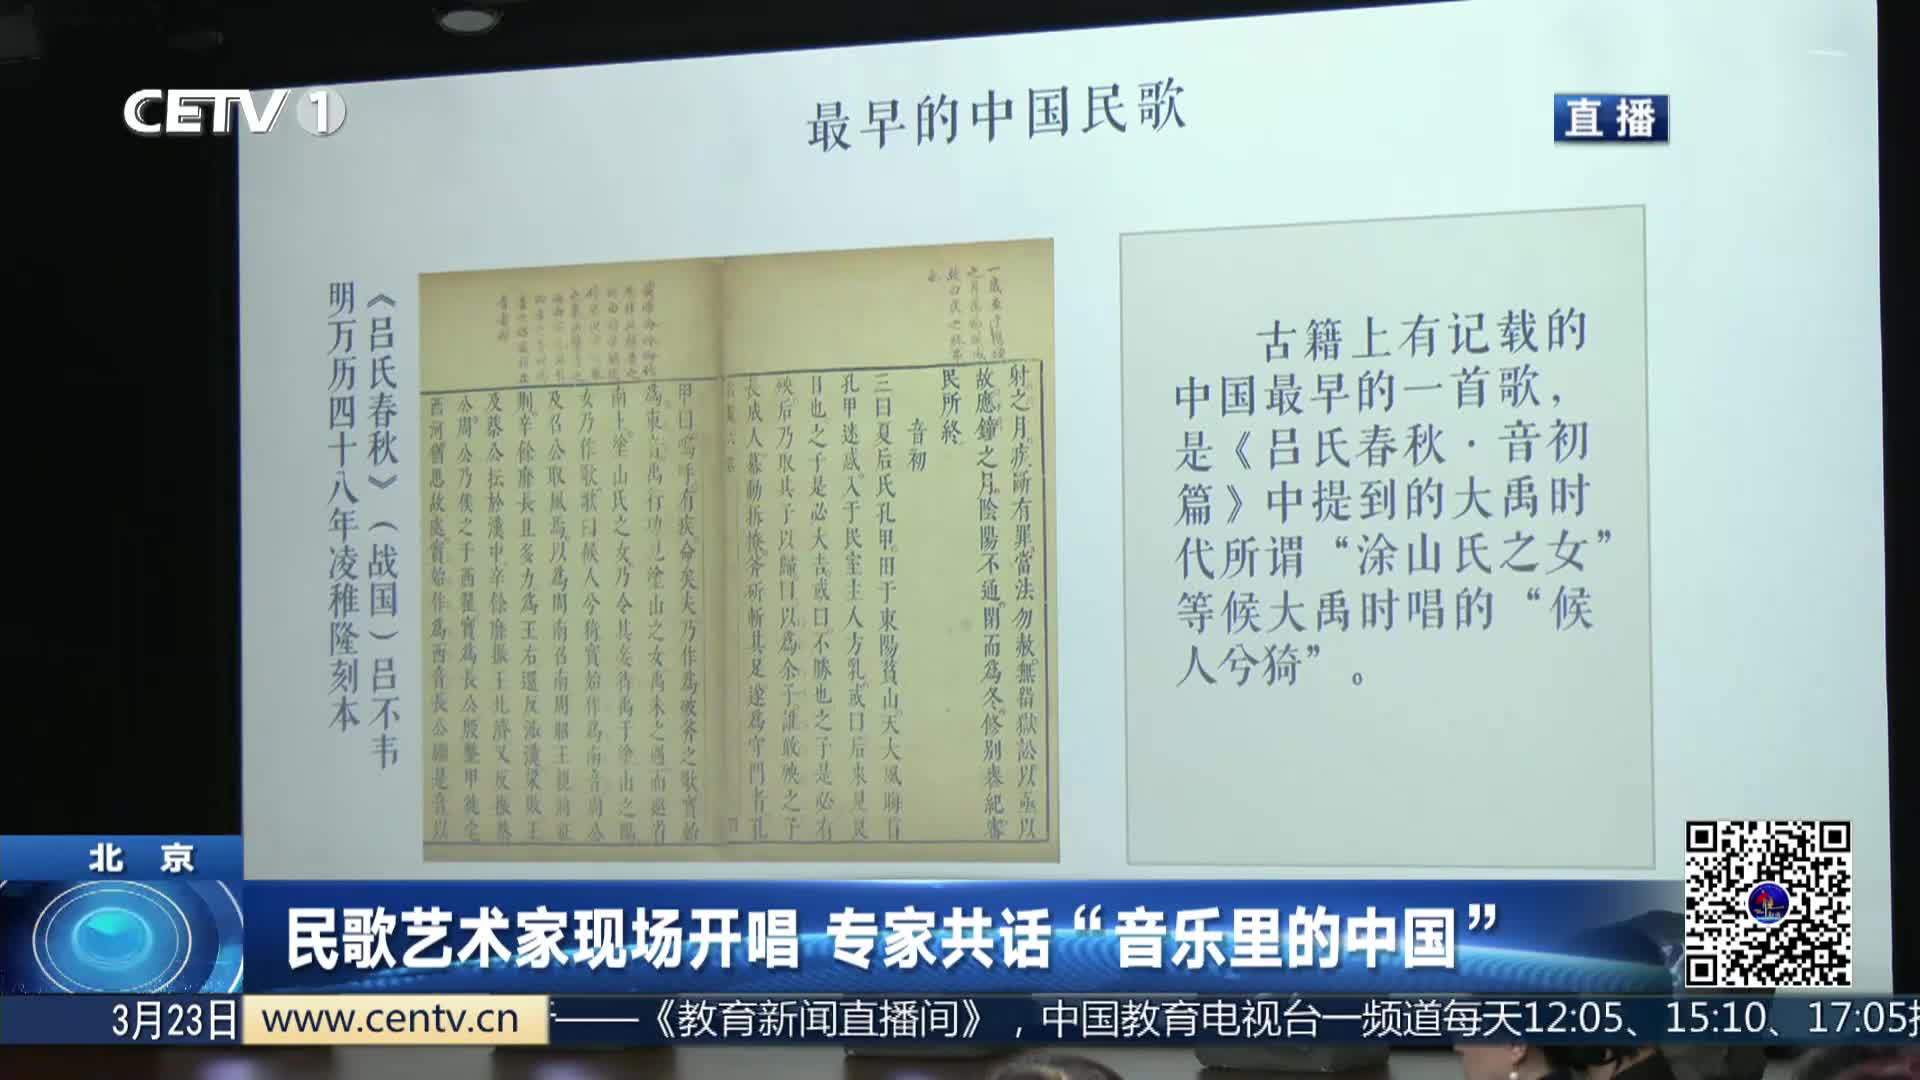 CETV 1
直播
最早的中国民歌
《吕氏春秋》（战国）吕不韦
明万历四十八年凌稚隆刻本
射之月疾斷有罪當法勿赦無留獄訟以亟以
故應鐘之月陰陽不通閉而爲冬修别喪紀審
民所終
音初
三曰夏后氏孔甲田于東陽萯山天大風晦盲
孔甲迷惑入于民室主人方乳或曰后來見良
日也之子是必大吉或曰不勝也之子是必有
殃后乃取其子以歸曰以爲余子誰敢殃之子
長成人幕動拆橑斧斫斬其足遂爲守門者孔
甲曰嗚呼有疾命矣夫乃作爲破斧之歌實始
爲東音禹行功見塗山之女禹未之遇而巡省
南土塗山氏之女乃令其妾待禹于塗山之陽
女乃作歌歌曰候人兮猗實始作爲南音周公
及召公取風焉以爲周南召南周昭王親將征
荆辛餘靡長且多力爲王右還反涉漢梁敗王
及蔡公抎於漢中辛餘靡振王北濟又反振蔡
公周公乃侯之于西翟實爲長公殷整甲徙宅
西河猶思故處實始作爲西音長公繼是音以
古籍上有记载的
中国最早的一首歌，
是《吕氏春秋·音初
篇》中提到的大禹时
代所谓“涂山氏之女”
等候大禹时唱的“候
人兮猗”。
北京
民歌艺术家现场开唱 专家共话“音乐里的中国”
3月23日
www.centv.cn
——《教育新闻直播间》，中国教育电视台一频道每天12:05、15:10、17:05